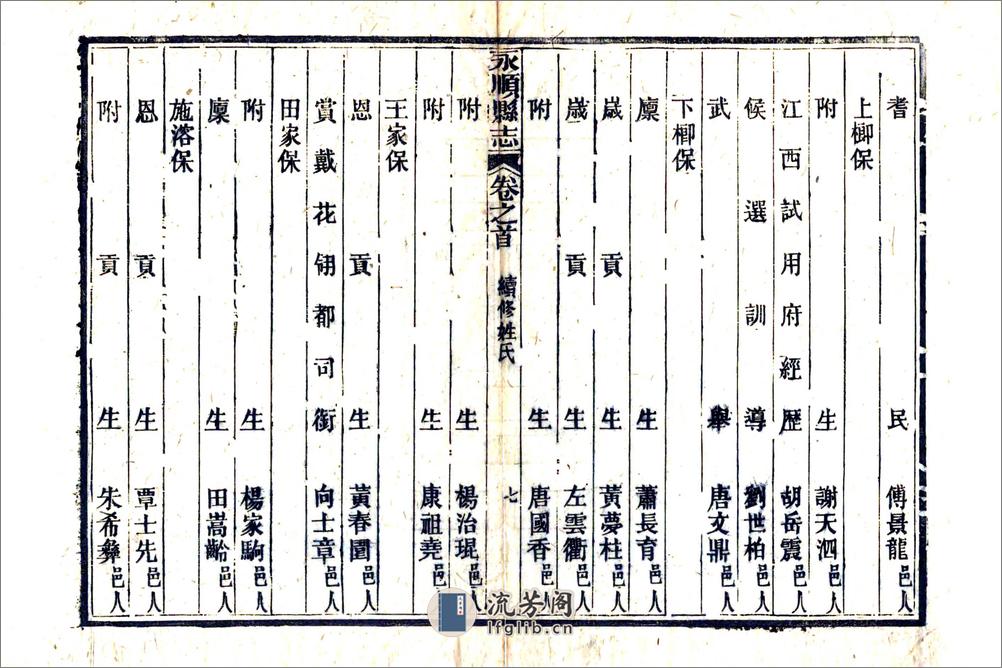 耆民傅景龍邑人
上榔保
附生謝天泗
江西試用府經歷胡岳震邑人
候選訓導劉世柏邑人
武舉唐文鼎邑人
下榔保
廩生蕭長育邑人
歲貢生黃夢柱邑人
歲貢生左雲衢邑人
附生唐國香邑人
永順縣志 卷之首 續修姓氏 七
附生楊治琨邑人
附生康祖堯邑人
王家保
恩貢生黃春圃邑人
賞戴花翎都司銜向士章邑人
田家保
附生楊家駒邑人
廩生田嵩齡邑人
施溶保
恩貢生覃士先邑人
附貢生朱希彝邑人
流芳阁
lfglib.cn